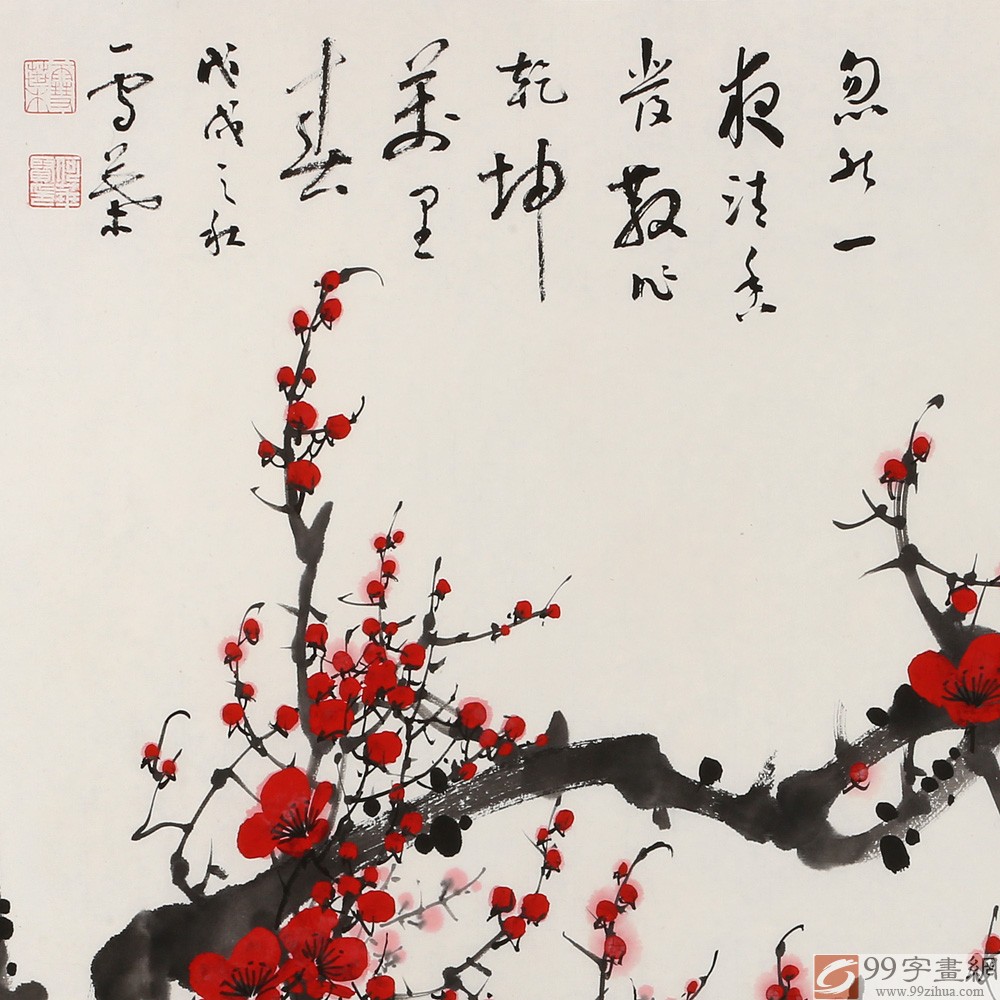 忽然一
夜清香
發散作
乾坤
萬里
春
戊戌之秋
雪葉
99字畫網
www.99zihua.com